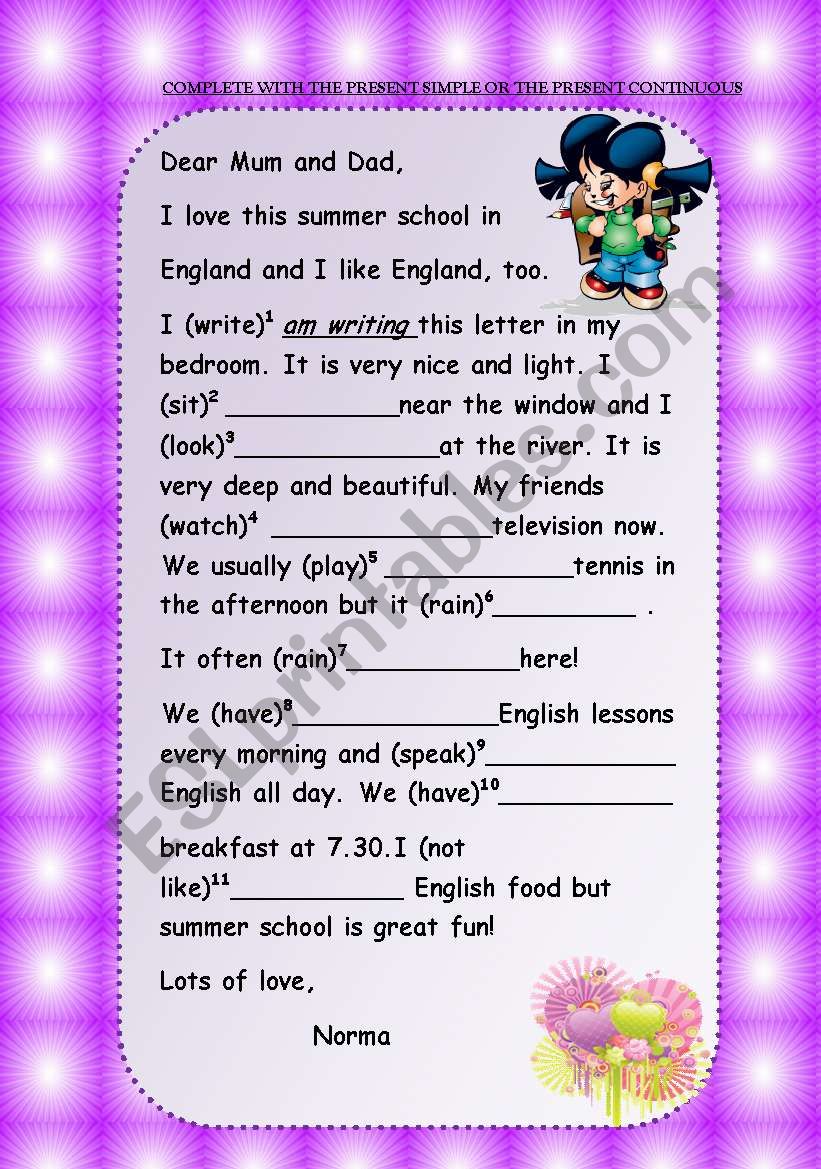 COMPLETE WITH THE PRESENT SIMPLE OR THE PRESENT CONTINUOUS
Dear Mum and Dad,
I love this summer school in
England and I like England, too.
I (write)¹ am writing this letter in my
bedroom. It is very nice and light. I
(sit)² ____________near the window and I
(look)³______________at the river. It is
very deep and beautiful. My friends
(watch)⁴ _______________television now.
We usually (play)⁵ _____________tennis in
the afternoon but it (rain)⁶__________ .
It often (rain)⁷____________here!
We (have)⁸______________English lessons
every morning and (speak)⁹_____________
English all day. We (have)¹⁰____________
breakfast at 7.30.I (not
like)¹¹____________ English food but
summer school is great fun!
Lots of love,
Norma
ESLprintables.com